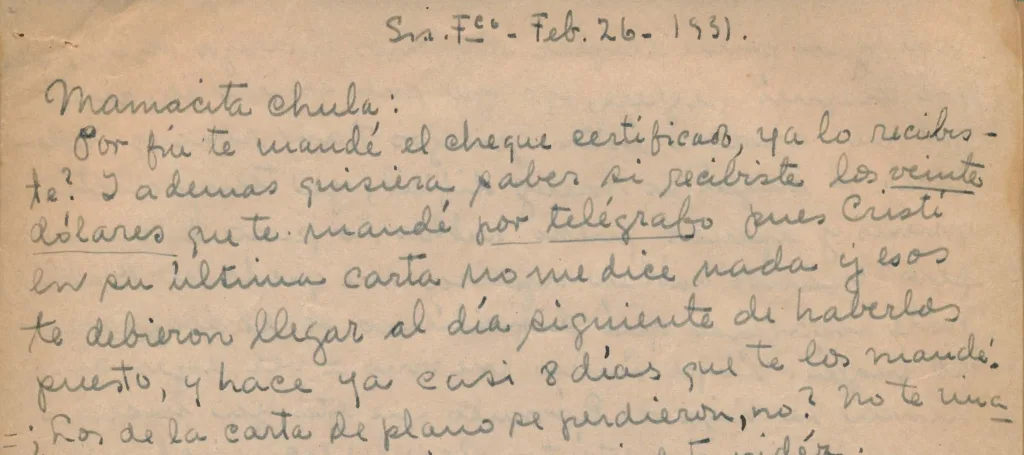 Sn. Fco - Feb. 26 - 1931.
Mamacita chula:
Por fin te mandé el cheque certificado, ya lo recibis-
te? I ademas quisiera saber si recibiste los veinte
dólares que te mandé por telégrafo pues Cristi
en su última carta no me dice nada y esos
te debieron llegar al día siguiente de haberlos
puesto, y hace ya casi 8 días que te los mandé.
= ¿Los de la carta de plano se perdieron, no? No te